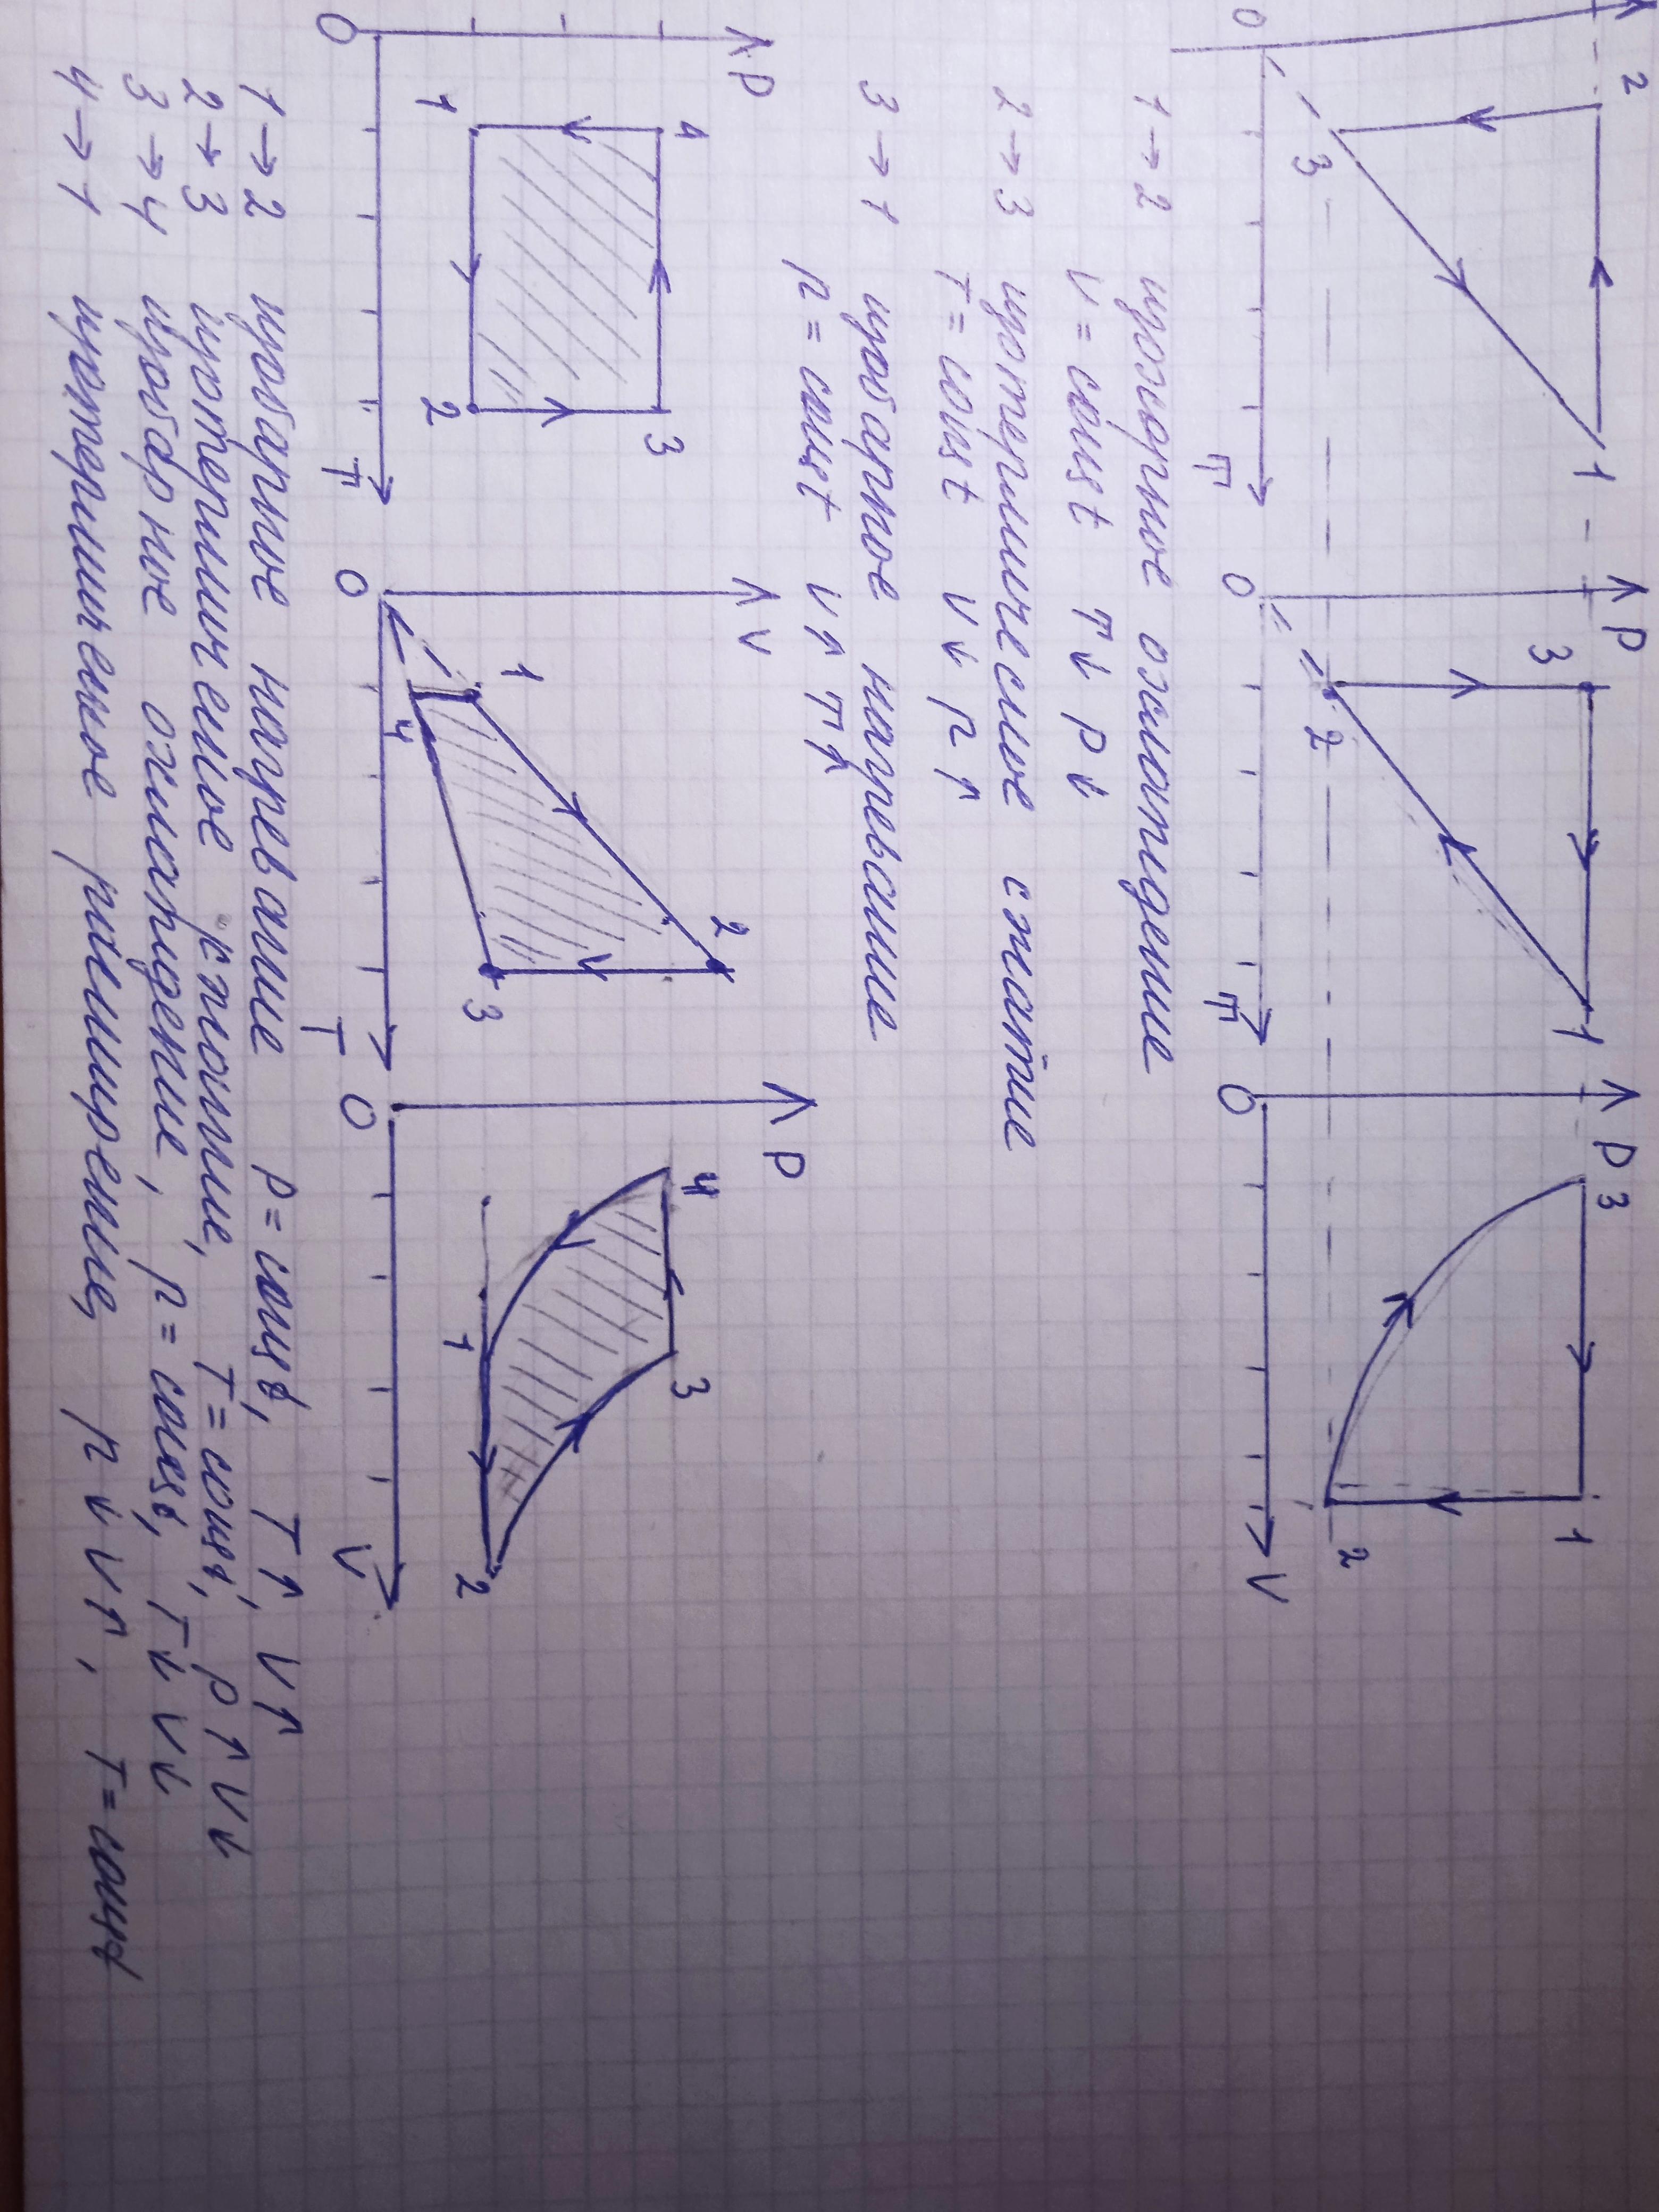 2 1 3 T O
P 3 1 2 T O
P 3 1 2 V O
1 → 2 изохорное охлаждение
V = const T↓ P↓
2 → 3 изотермическое сжатие
T = const V↓ P↑
3 → 1 изобарное нагревание
P = const V↑ T↑
P 4 3 1 2 T O
V 1 2 4 3 T O
P 4 3 1 2 V O
1 → 2 изобарное нагревание P = const, T↑, V↑
2 → 3 изотермическое сжатие, T = const, P↑ V↓
3 → 4 изобарное охлаждение, P = const, T↓ V↓
4 → 1 изотермическое расширение, P↓ V↑, T = const